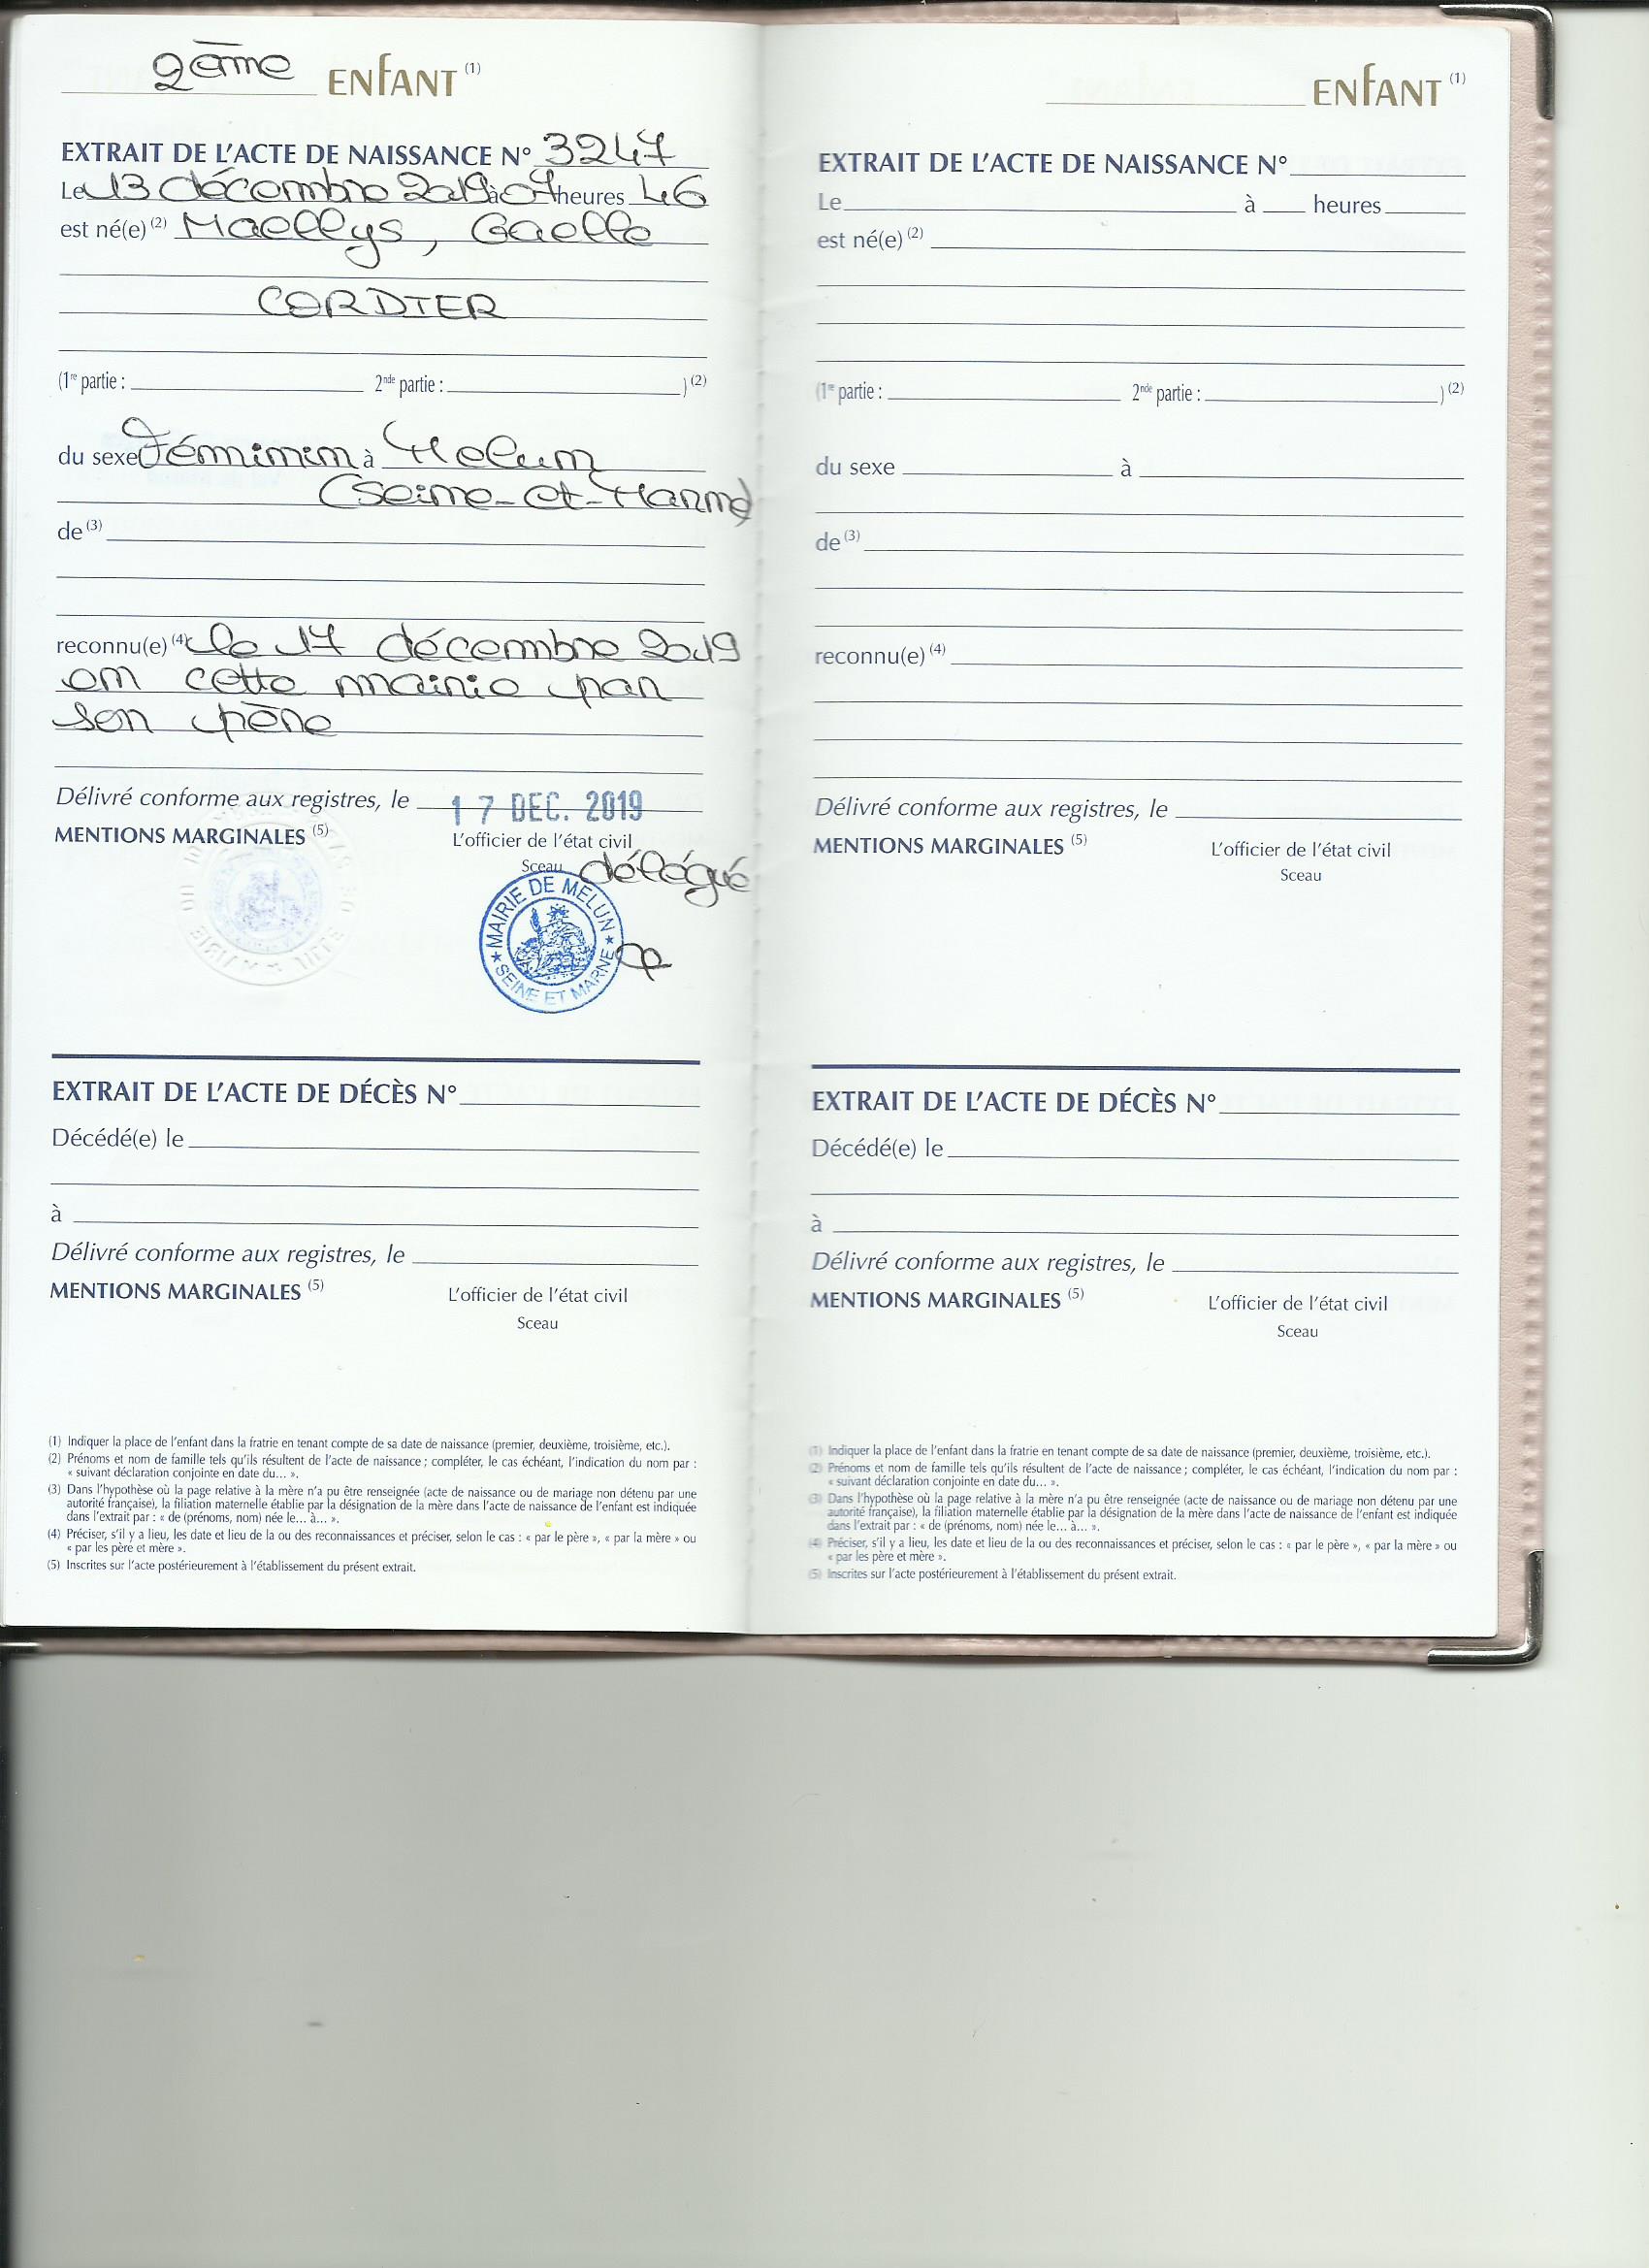 2ème ENFANT (1)
EXTRAIT DE L'ACTE DE NAISSANCE N° 3247
Le 13 décembre 2019 à 07 heures 46
est né(e) (2) Maellys, Gaelle
CORDIER
(1re partie : 2nde partie : ) (2)
du sexe Féminin à Melun
(Seine-et-Marne)
de (3)
reconnu(e) (4) le 17 décembre 2019
en cette mairie par
son père
Délivré conforme aux registres, le 17 DEC. 2019
MENTIONS MARGINALES (5)
L'officier de l'état civil
Sceau délégué
MAIRIE DE MELUN
SEINE ET MARNE
EXTRAIT DE L'ACTE DE DÉCÈS N°
Décédé(e) le
à
Délivré conforme aux registres, le
MENTIONS MARGINALES (5)
L'officier de l'état civil
Sceau
(1) Indiquer la place de l'enfant dans la fratrie en tenant compte de sa date de naissance (premier, deuxième, troisième, etc.).
(2) Prénoms et nom de famille tels qu'ils résultent de l'acte de naissance ; compléter, le cas échéant, l'indication du nom par :
« suivant déclaration conjointe en date du... ».
(3) Dans l'hypothèse où la page relative à la mère n'a pu être renseignée (acte de naissance ou de mariage non détenu par une
autorité française), la filiation maternelle établie par la désignation de la mère dans l'acte de naissance de l'enfant est indiquée
dans l'extrait par : « de (prénoms, nom) née le... à... ».
(4) Préciser, s'il y a lieu, les date et lieu de la ou des reconnaissances et préciser, selon le cas : « par le père », « par la mère » ou
« par les père et mère ».
(5) Inscrites sur l'acte postérieurement à l'établissement du présent extrait.
ENFANT (1)
EXTRAIT DE L'ACTE DE NAISSANCE N°
Le à heures
est né(e) (2)
(1re partie : 2nde partie : ) (2)
du sexe à
de (3)
reconnu(e) (4)
Délivré conforme aux registres, le
MENTIONS MARGINALES (5)
L'officier de l'état civil
Sceau
EXTRAIT DE L'ACTE DE DÉCÈS N°
Décédé(e) le
à
Délivré conforme aux registres, le
MENTIONS MARGINALES (5)
L'officier de l'état civil
Sceau
(1) Indiquer la place de l'enfant dans la fratrie en tenant compte de sa date de naissance (premier, deuxième, troisième, etc.).
(2) Prénoms et nom de famille tels qu'ils résultent de l'acte de naissance ; compléter, le cas échéant, l'indication du nom par :
« suivant déclaration conjointe en date du... ».
(3) Dans l'hypothèse où la page relative à la mère n'a pu être renseignée (acte de naissance ou de mariage non détenu par une
autorité française), la filiation maternelle établie par la désignation de la mère dans l'acte de naissance de l'enfant est indiquée
dans l'extrait par : « de (prénoms, nom) née le... à... ».
(4) Préciser, s'il y a lieu, les date et lieu de la ou des reconnaissances et préciser, selon le cas : « par le père », « par la mère » ou
« par les père et mère ».
(5) Inscrites sur l'acte postérieurement à l'établissement du présent extrait.